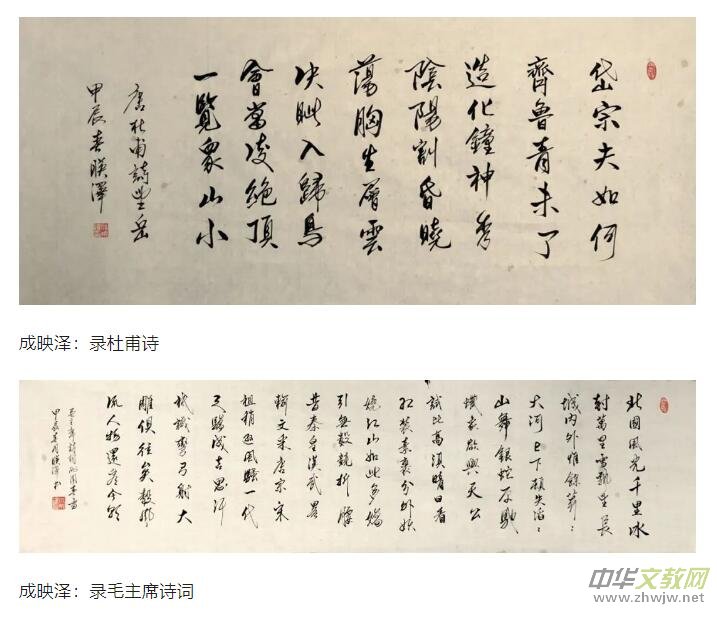 岱宗夫如何
齊魯青未了
造化鐘神秀
陰陽割昏曉
蕩胸生層雲
决眦入歸鳥
會當凌絕頂
一覽衆山小
唐杜甫詩望岳
甲辰春映澤
成映泽：录杜甫诗
北國風光千里冰
封萬里雪飄望長
城內外惟餘莽々
大河上下頓失滔々
山舞銀蛇原馳
蠟象欲與天公
試比高須晴日看
紅裝素裹分外妖
嬈江山如此多嬌
引無數競折腰
昔秦皇漢武略
輸文采唐宗宋
祖稍遜風騷一代
天驕成吉思汗
只識彎弓射大
雕俱往矣數風
流人物還看今朝
毛主席詩詞沁園春雪
甲辰春月映澤書
成映泽：录毛主席诗词
中华文教网
www.zhwjw.net